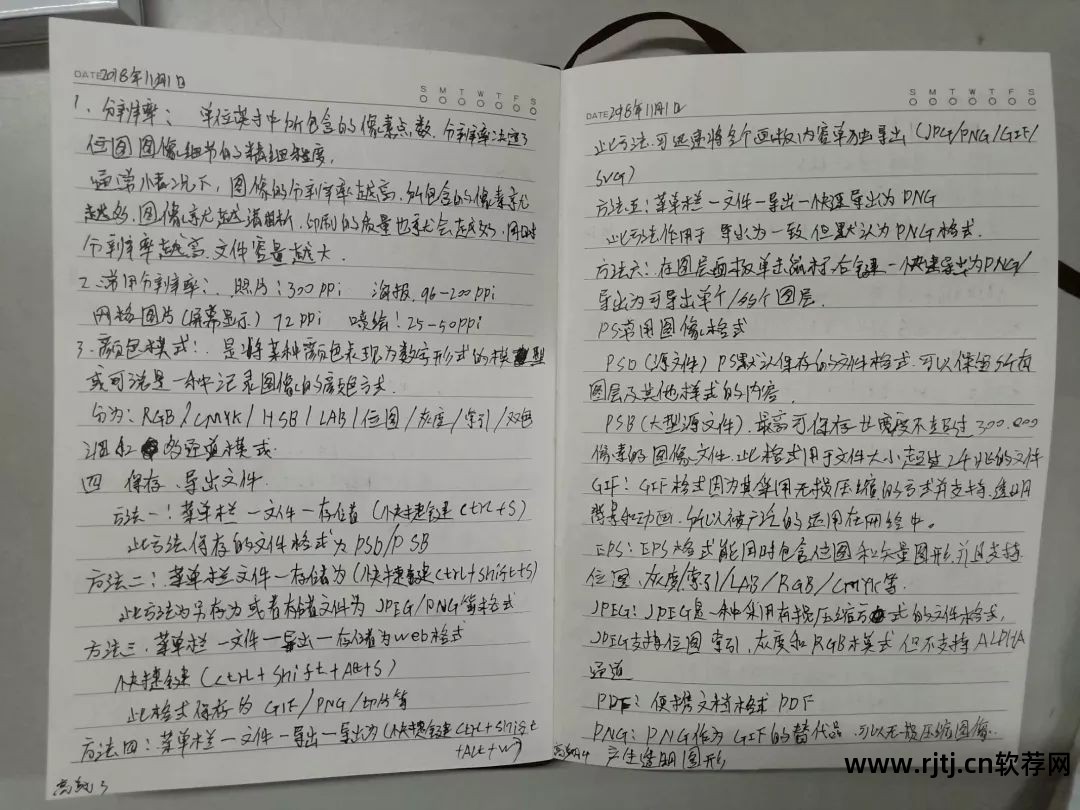 DATE 2018年11月1日
S M T W T F S
1、分辨率： 单位英寸中所包含的像素点数，分辨率决定了
位图图像细节的精细程度，
通常情况下，图像的分辨率越高，所包含的像素就
越多，图像就越清晰，印刷的质量也就会越好，同时
分辨率越高，文件容量越大．
2、常用分辨率：．照片：300PPi 海报，96-200PPi
网络图片（屏幕显示）72PPi 喷绘：25-50PPi
3．颜色模式：．是将某种颜色表现为数字形式的模型
或可说是一种记录图像的颜色方式．
分为：RGB/CMYK/HSB/LAB/位图/灰度/索引/双色
调和 多通道模式．
四 保存，导出文件．
方法一：菜单栏—文件—存储（快捷键Ctrl+S）
此方法保存的文件格式为PSD/PSB
方法二：菜单栏文件—存储为（快捷键Ctrl+Shift+S）
此方法为另存为或者存储文件为JPEG/PNG等格式
方法三．菜单栏—文件—导出—存储为web格式
快捷键（Ctrl+Shift+Alt+S）
此格式保存的GIF/PNG/切片等
方法四：菜单栏—文件—导出—导出为（快捷键Ctrl+Shift
+Alt+W）
DATE 2018年11月1日
S M T W T F S
此方法．可迅速将全个画板内容单独导出（JPG/PNG/GIF/
SVG）
方法五：菜单栏—文件—导出—快速导出为PNG
此方法作用于 导出为一致，但默认为PNG格式．
方法六：在图层面板单击鼠标右键—快速导出为PNG/
导出为可导出单个/多个图层．
PS常用图像格式
PSD（源文件）PS默认保存的文件格式，可以保留所有
图层及其他样式的内容．
PSB（大型源文件）．最高可保存 宽度不超过300.000
像素的图像文件，此格式用于文件大小超过2 的文件
GIF：GIF格式因为其采用无损压缩的方式并支持，透明
背景和动画，所以被广泛的运用在网络中。
EPS：EPS格式能同时包含位图和矢量图形，并且支持
位图，灰度/索引/LAB/RGB/CMYK等．
JPEG：JPEG是一种采用有损压缩方式的文件格式，
JPEG支持位图 索引，灰度和RGB模式 但不支持ALPHA
通道
PDF：便携文档格式PDF
PNG：PNG作为GIF的替代品，可以无损压缩图像．
产生透明图形
www.rjtj.cn软荐网